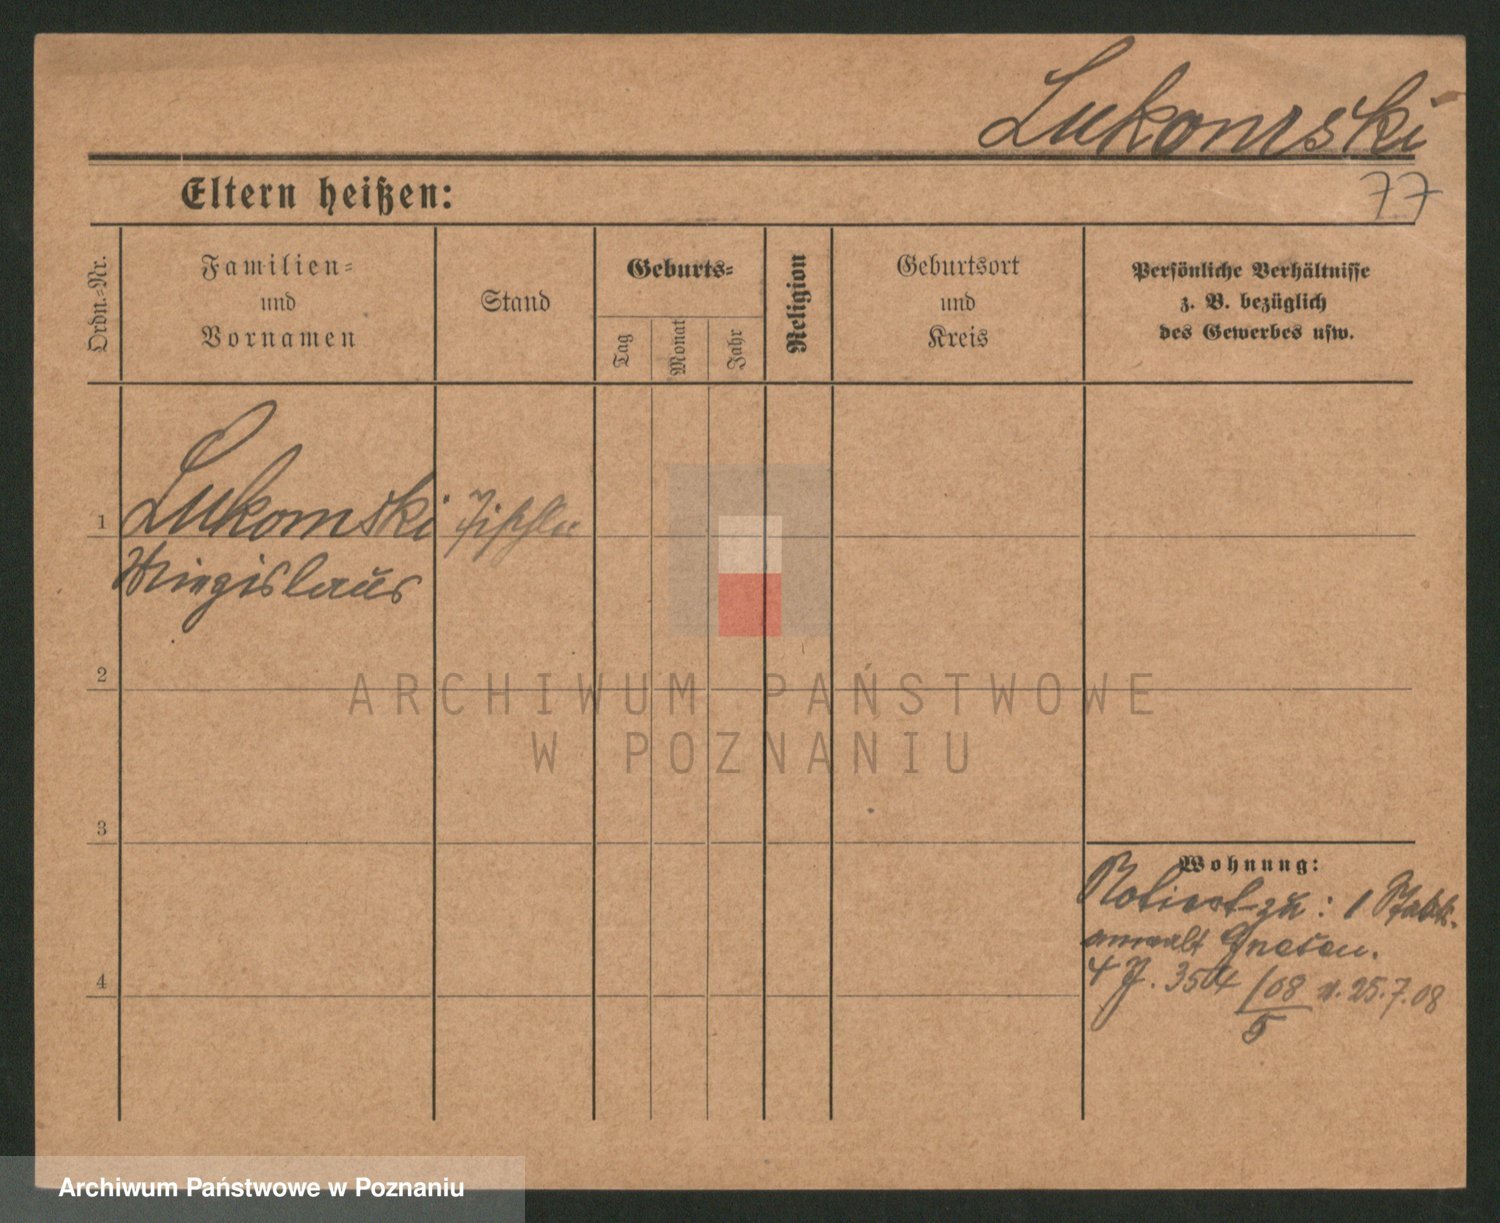 Lukomski
77
Eltern heißen:
Ordn.-Nr.
Familien-
und
Vornamen
Stand
Geburts-
Tag
Monat
Jahr
Religion
Geburtsort
und
Kreis
Persönliche Verhältnisse
z. B. bezüglich
des Gewerbes usw.
1
Lukomski
Tischler
2
ARCHIWUM PAŃSTWOWE
W POZNANIU
3
Wohnung:
Notiert zu: 1 Staats-
anwalt Gnesen.
4 J. 354/08 v. 25.7.08
5
4
Archiwum Państwowe w Poznaniu